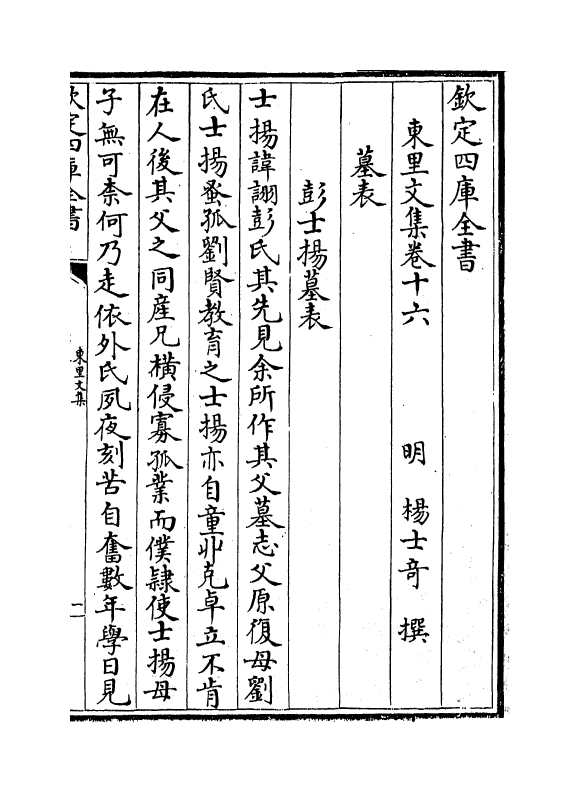 欽定四庫全書
東里文集卷十六
明 楊士奇 撰
墓表
彭士揚墓表
士揚諱詡彭氏其先見余所作其父墓志父原復母劉
氏士揚蚤孤劉賢教育之士揚亦自童丱克卓立不肯
在人後其父之同産兄橫侵寡孤業而僕隷使士揚母
子無可柰何乃走依外氏夙夜刻苦自奮數年學日見
欽定四庫全書
東里文集